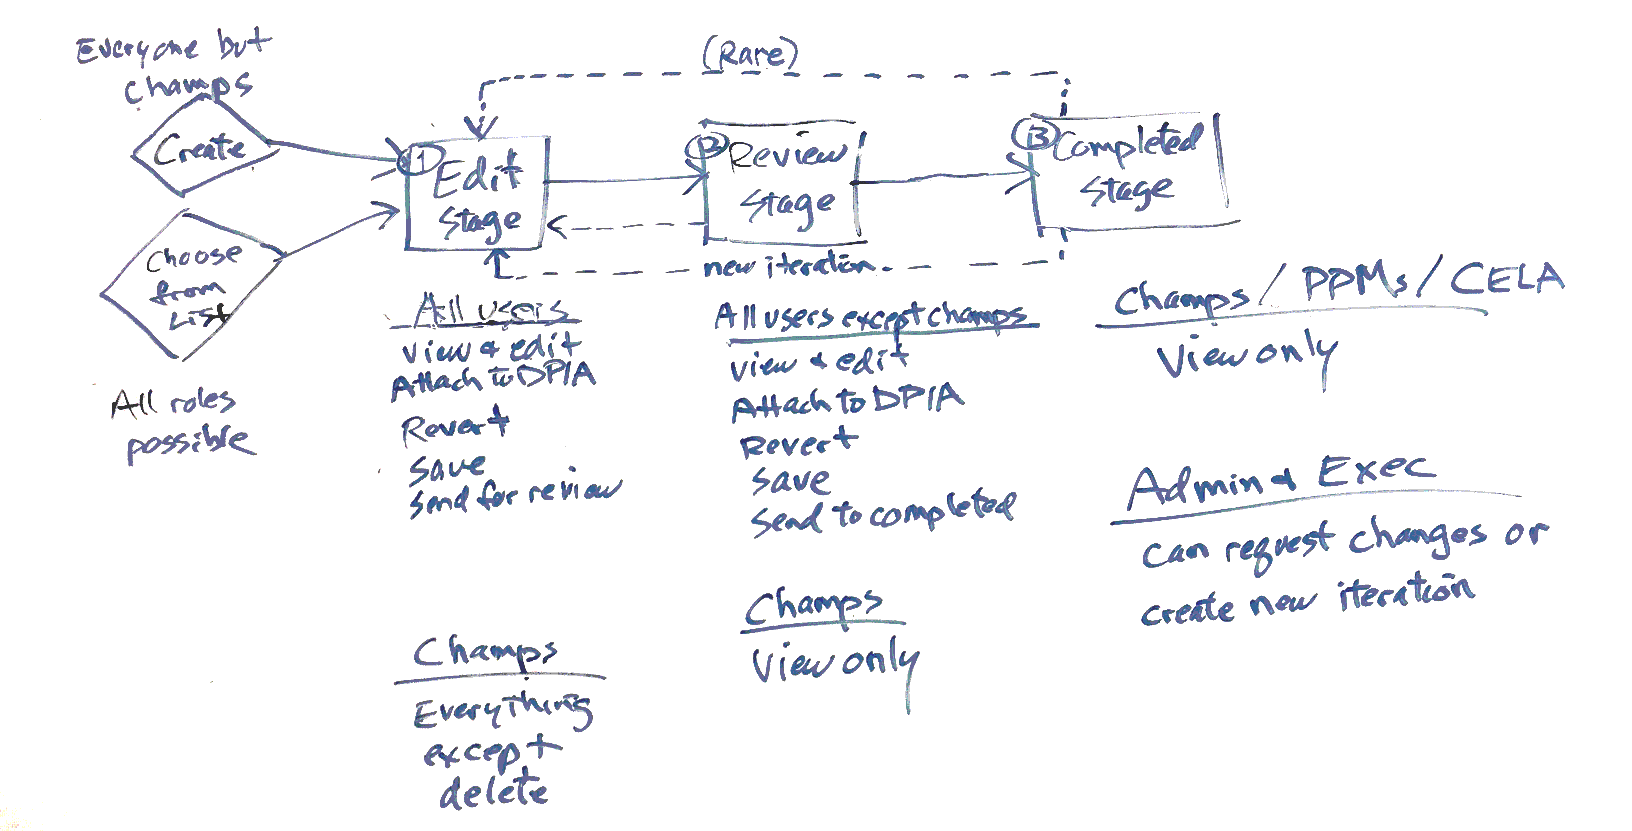 Everyone but
champs
Create
Choose
from
List
All roles
possible
(Rare)
1
Edit
Stage
2
Review
Stage
3
Completed
Stage
new iteration
All users
view & edit
Attach to DPIA
Revert
Save
Send for review
Champs
Everything
except
delete
All users except champs
view & edit
Attach to DPIA
Revert
Save
Send to completed
Champs
View only
Champs / PPMs / CELA
View only
Admin & Exec
can request changes or
create new iteration